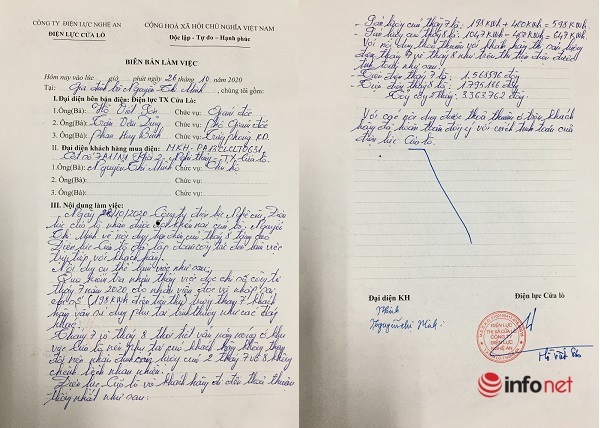 CÔNG TY ĐIỆN LỰC NGHỆ AN
CỘNG HOÀ XÃ HỘI CHỦ NGHĨA VIỆT NAM
ĐIỆN LỰC CỬA LÒ
Độc lập - Tự do - Hạnh phúc
BIÊN BẢN LÀM VIỆC
Hôm nay vào lúc giờ phút ngày 26 tháng 10 - 2020
Tại: Gia đình bà Nguyễn Thị Minh, chúng tôi gồm:
I. Đại diện bên bán điện: Điện lực TX Cửa Lò:
1.Ông(Bà): Chức vụ: Giám đốc
2.Ông(Bà): Trần Chức vụ: Phó Giám đốc
3.Ông(Bà): Phan Huy Chức vụ: Trưởng phòng KD.
II. Đại diện khách hàng mua điện: MKH-
TX Cửa Lò.
1.Ông(Bà): Nguyễn Thị Minh Chức vụ: Chủ hộ
2.Ông(Bà): Chức vụ:
3.Ông(Bà): Chức vụ:
III. Nội dung làm việc:
Ngày /10/2020 Công ty điện lực Nghệ An, Điện
lực Cửa Lò nhận được khiếu nại của bà: Nguyễn
Thị Minh về nội dung tiền điện của tháng 8 tăng cao
Điện lực Cửa Lò đã lập đoàn công tác đến làm việc
trực tiếp với khách hàng.
Nội dung cụ thể làm việc như sau:
Qua kiểm tra nhận thấy việc đọc chỉ số công tơ
tháng 7 năm 2020 do nhân viên đọc và nhập sai
chỉ số (198 KWh điện tiêu thụ) trong tháng 7 khách
hàng vẫn sử dụng phụ tải bình thường như các tháng
trước.
Tháng 7 và tháng 8 thời tiết vẫn nắng nóng ở khu
vực Cửa Lò nên phụ tải của khách hàng không thay
đổi nên nhận định sản lượng của 2 tháng 7 và 8 không
chênh lệch nhau nhiều.
Điện lực Cửa Lò và khách hàng đi đến thoả thuận
thống nhất như sau:
- Sản lượng của tháng 7 là: 198 KWh + 400 KWh = 598 KWh.
- Sản lượng của tháng 8 là: 1047 KWh - 400 KWh = 647 KWh.
Với nội dung thoả thuận với khách hàng thì sản lượng
điện tháng 7 và tháng 8 như trên thì tiền điện được
tính toán như sau:
- Tiền điện tháng 7 là: 1.568.596 đồng
- Tiền điện tháng 8 là: 1.795.166 đồng
Tổng cộng 2 tháng: 3.363.762 đồng
Với các nội dung được thoả thuận ở trên, khách
hàng đã hoàn toàn đồng ý với cách tính toán của
điện lực Cửa Lò.
Đại diện KH
Điện lực Cửa lò
Minh
Nguyễn Thị Minh
ĐIỆN LỰC
THỊ XÃ CỬA LÒ
CÔNG TY
ĐIỆN LỰC
NGHỆ AN
infonet